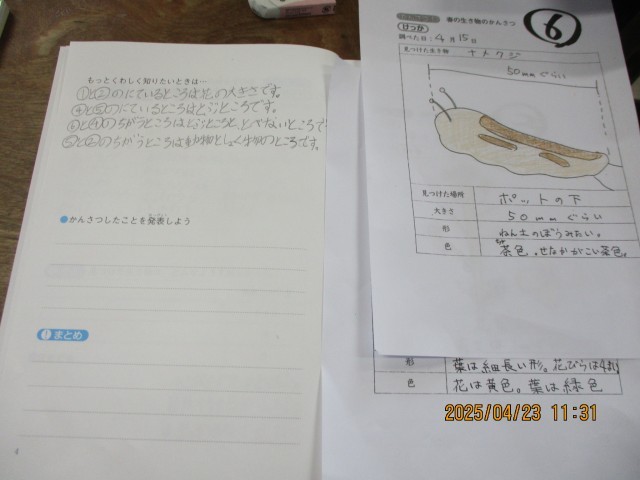 もっとくわしく知りたいときは…
①と②のにているところは花の大きさです。
④と⑤のにているところはとぶところです。
⑥と④のちがうところはとぶところと、とべないところで
⑤と②のちがうところは動物としょく物のところです。
●かんさつしたことを発表しよう
まとめ
4
春の生き物のかんさつ
けっか
調べた日:4月15日
⑥
見つけた生き物 ナメクジ
50mmぐらい
見つけた場所 ポットの下
大きさ 50mmぐらい
形 ねん土のぼうみたい。
色 茶色。せなかがこい茶色。
形 葉は細長い形。花びらは4まい
色 花は黄色。葉は緑色
2025/04/23 11:31